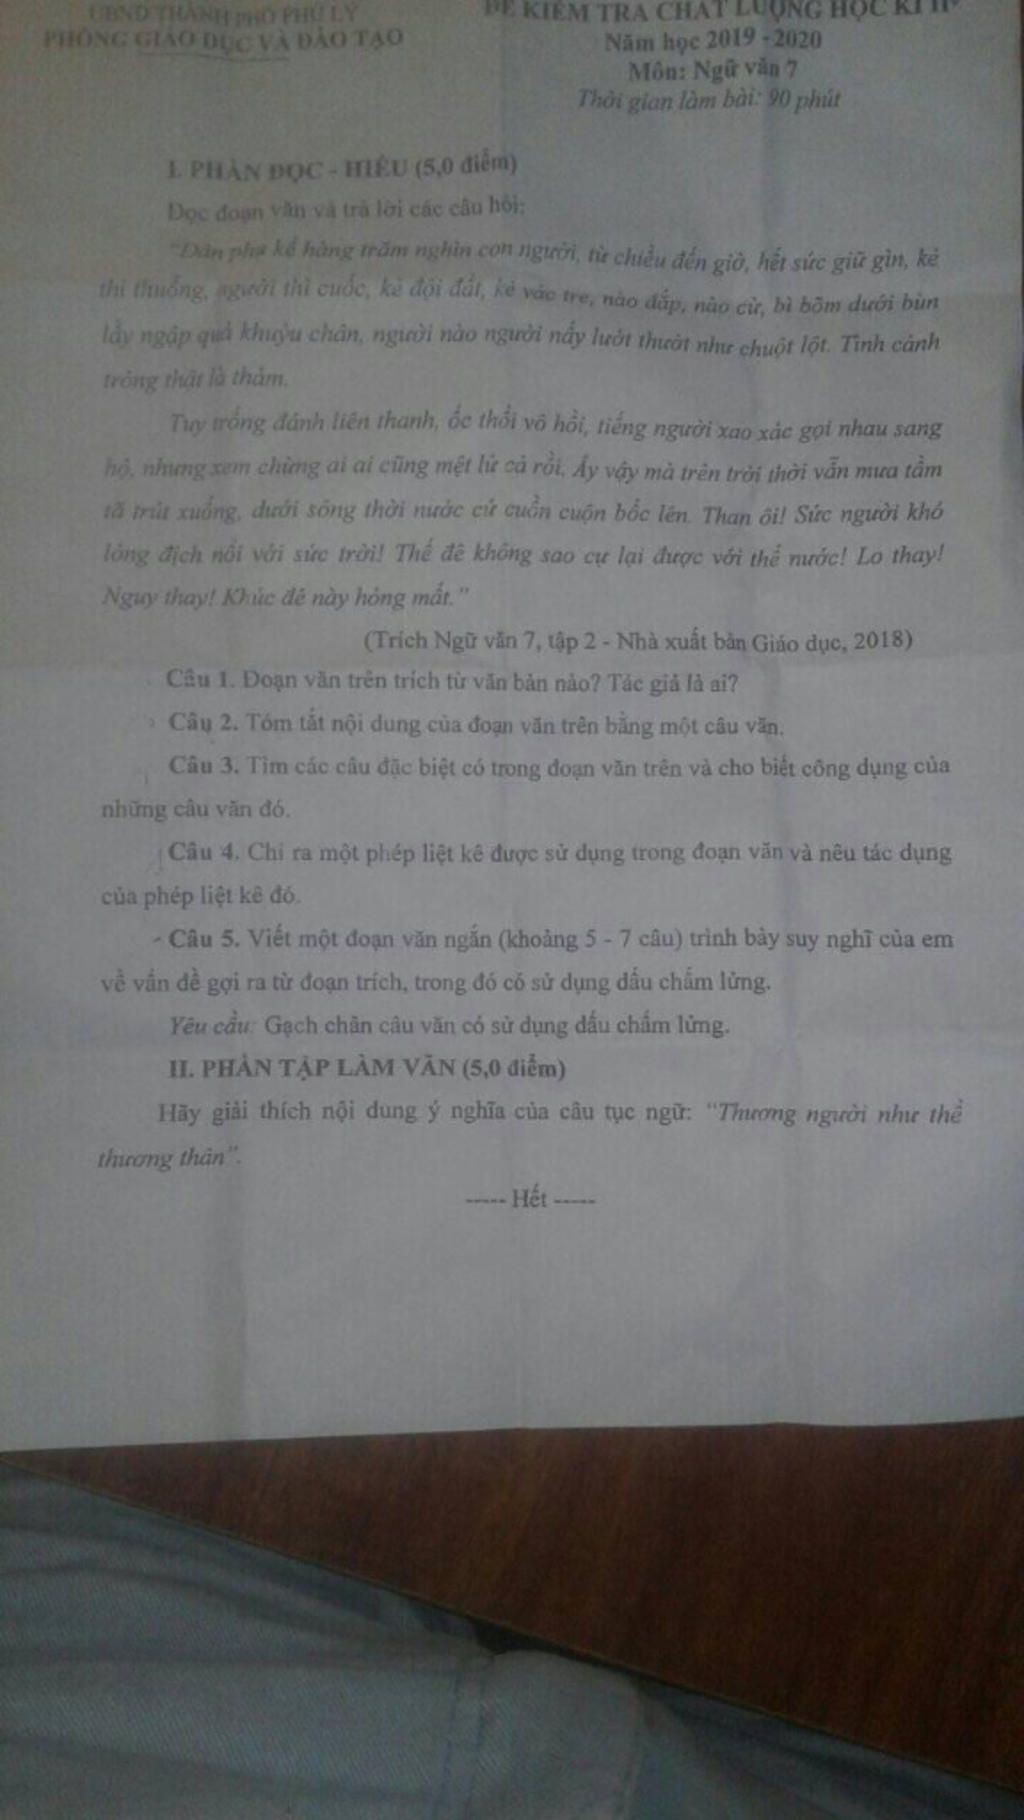 UBND THÀNH PHỐ PHỦ LÝ
PHÒNG GIÁO DỤC VÀ ĐÀO TẠO
ĐỀ KIỂM TRA CHẤT LƯỢNG HỌC KÌ II
Năm học 2019 - 2020
Môn: Ngữ văn 7
Thời gian làm bài: 90 phút
I. PHẦN ĐỌC - HIỂU (5,0 điểm)
Đọc đoạn văn và trả lời các câu hỏi:
"Dân phu kể hàng trăm nghìn con người, từ chiều đến giờ, hết sức giữ gìn, kẻ
thì thuổng, người thì cuốc, kẻ đội đất, kẻ vác tre, nào đắp, nào cừ, bì bõm dưới bùn
lầy ngập quá khuỷu chân, người nào người nấy lướt thướt như chuột lột. Tình cảnh
trông thật là thảm.
Tuy trống đánh liên thanh, ốc thổi vô hồi, tiếng người xao xác gọi nhau sang
hộ, nhưng xem chừng ai ai cũng mệt lử cả rồi. Ấy vậy mà trên trời thời vẫn mưa tầm
tã trút xuống, dưới sông thời nước cứ cuồn cuộn bốc lên. Than ôi! Sức người khó
lòng địch nổi với sức trời! Thế đê không sao cự lại được với thế nước! Lo thay!
Nguy thay! Khúc đê này hỏng mất."
(Trích Ngữ văn 7, tập 2 - Nhà xuất bản Giáo dục, 2018)
Câu 1. Đoạn văn trên trích từ văn bản nào? Tác giả là ai?
Câu 2. Tóm tắt nội dung của đoạn văn trên bằng một câu văn.
Câu 3. Tìm các câu đặc biệt có trong đoạn văn trên và cho biết công dụng của
những câu văn đó.
Câu 4. Chỉ ra một phép liệt kê được sử dụng trong đoạn văn và nêu tác dụng
của phép liệt kê đó.
- Câu 5. Viết một đoạn văn ngắn (khoảng 5 - 7 câu) trình bày suy nghĩ của em
về vấn đề gợi ra từ đoạn trích, trong đó có sử dụng dấu chấm lửng.
Yêu cầu: Gạch chân câu văn có sử dụng dấu chấm lửng.
II. PHẦN TẬP LÀM VĂN (5,0 điểm)
Hãy giải thích nội dung ý nghĩa của câu tục ngữ: "Thương người như thể
thương thân".
----- Hết -----